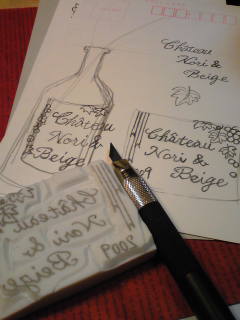 Château
Nori &
Beige
Château
Nori &
Beige
Château
Nori &
Beige
2009
Château
Nori &
Beige
2009